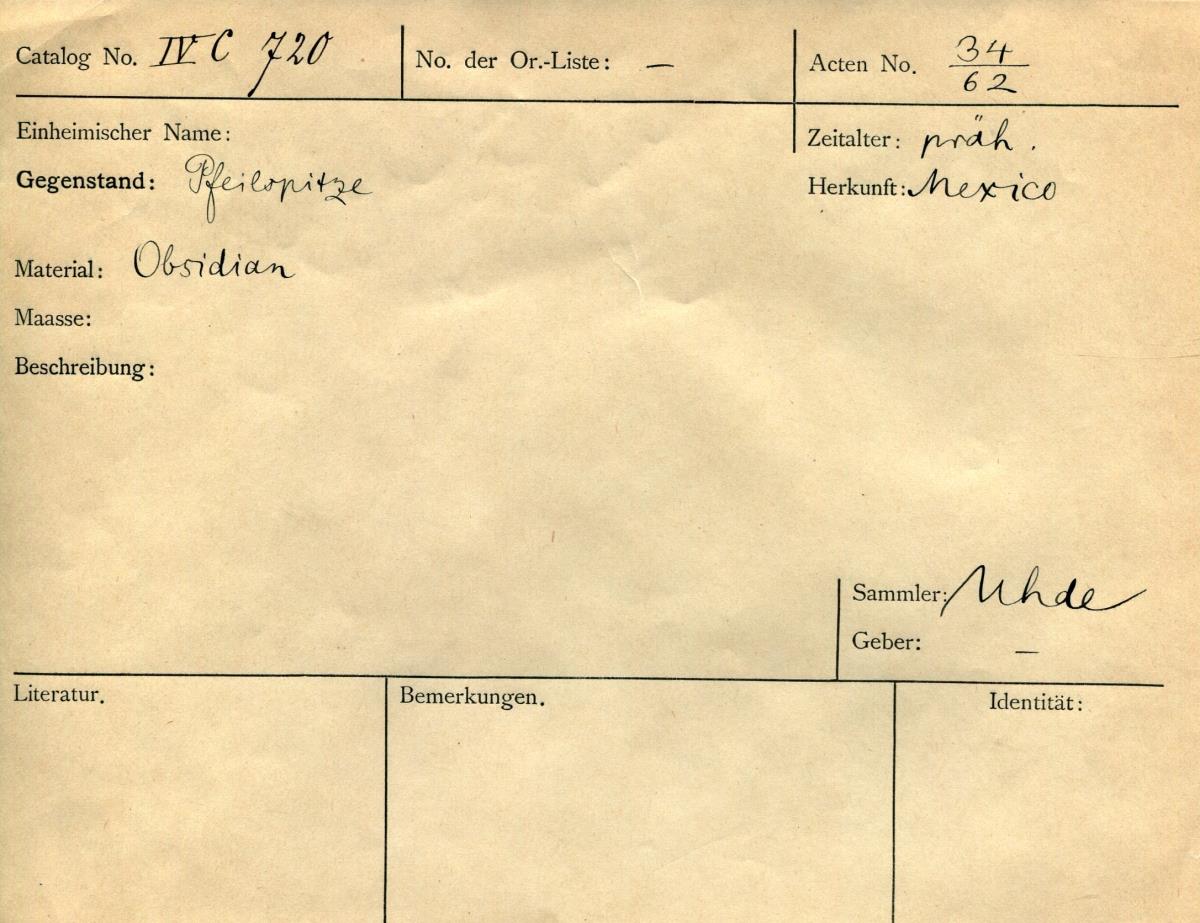 Catalog No. IV C 720
No. der Or.-Liste: —
Acten No. 34/62
Einheimischer Name:
Zeitalter: präh.
Gegenstand: Pfeilspitze
Herkunft: Mexico
Material: Obsidian
Maasse:
Beschreibung:
Sammler: Uhde
Geber: —
Literatur.
Bemerkungen.
Identität: